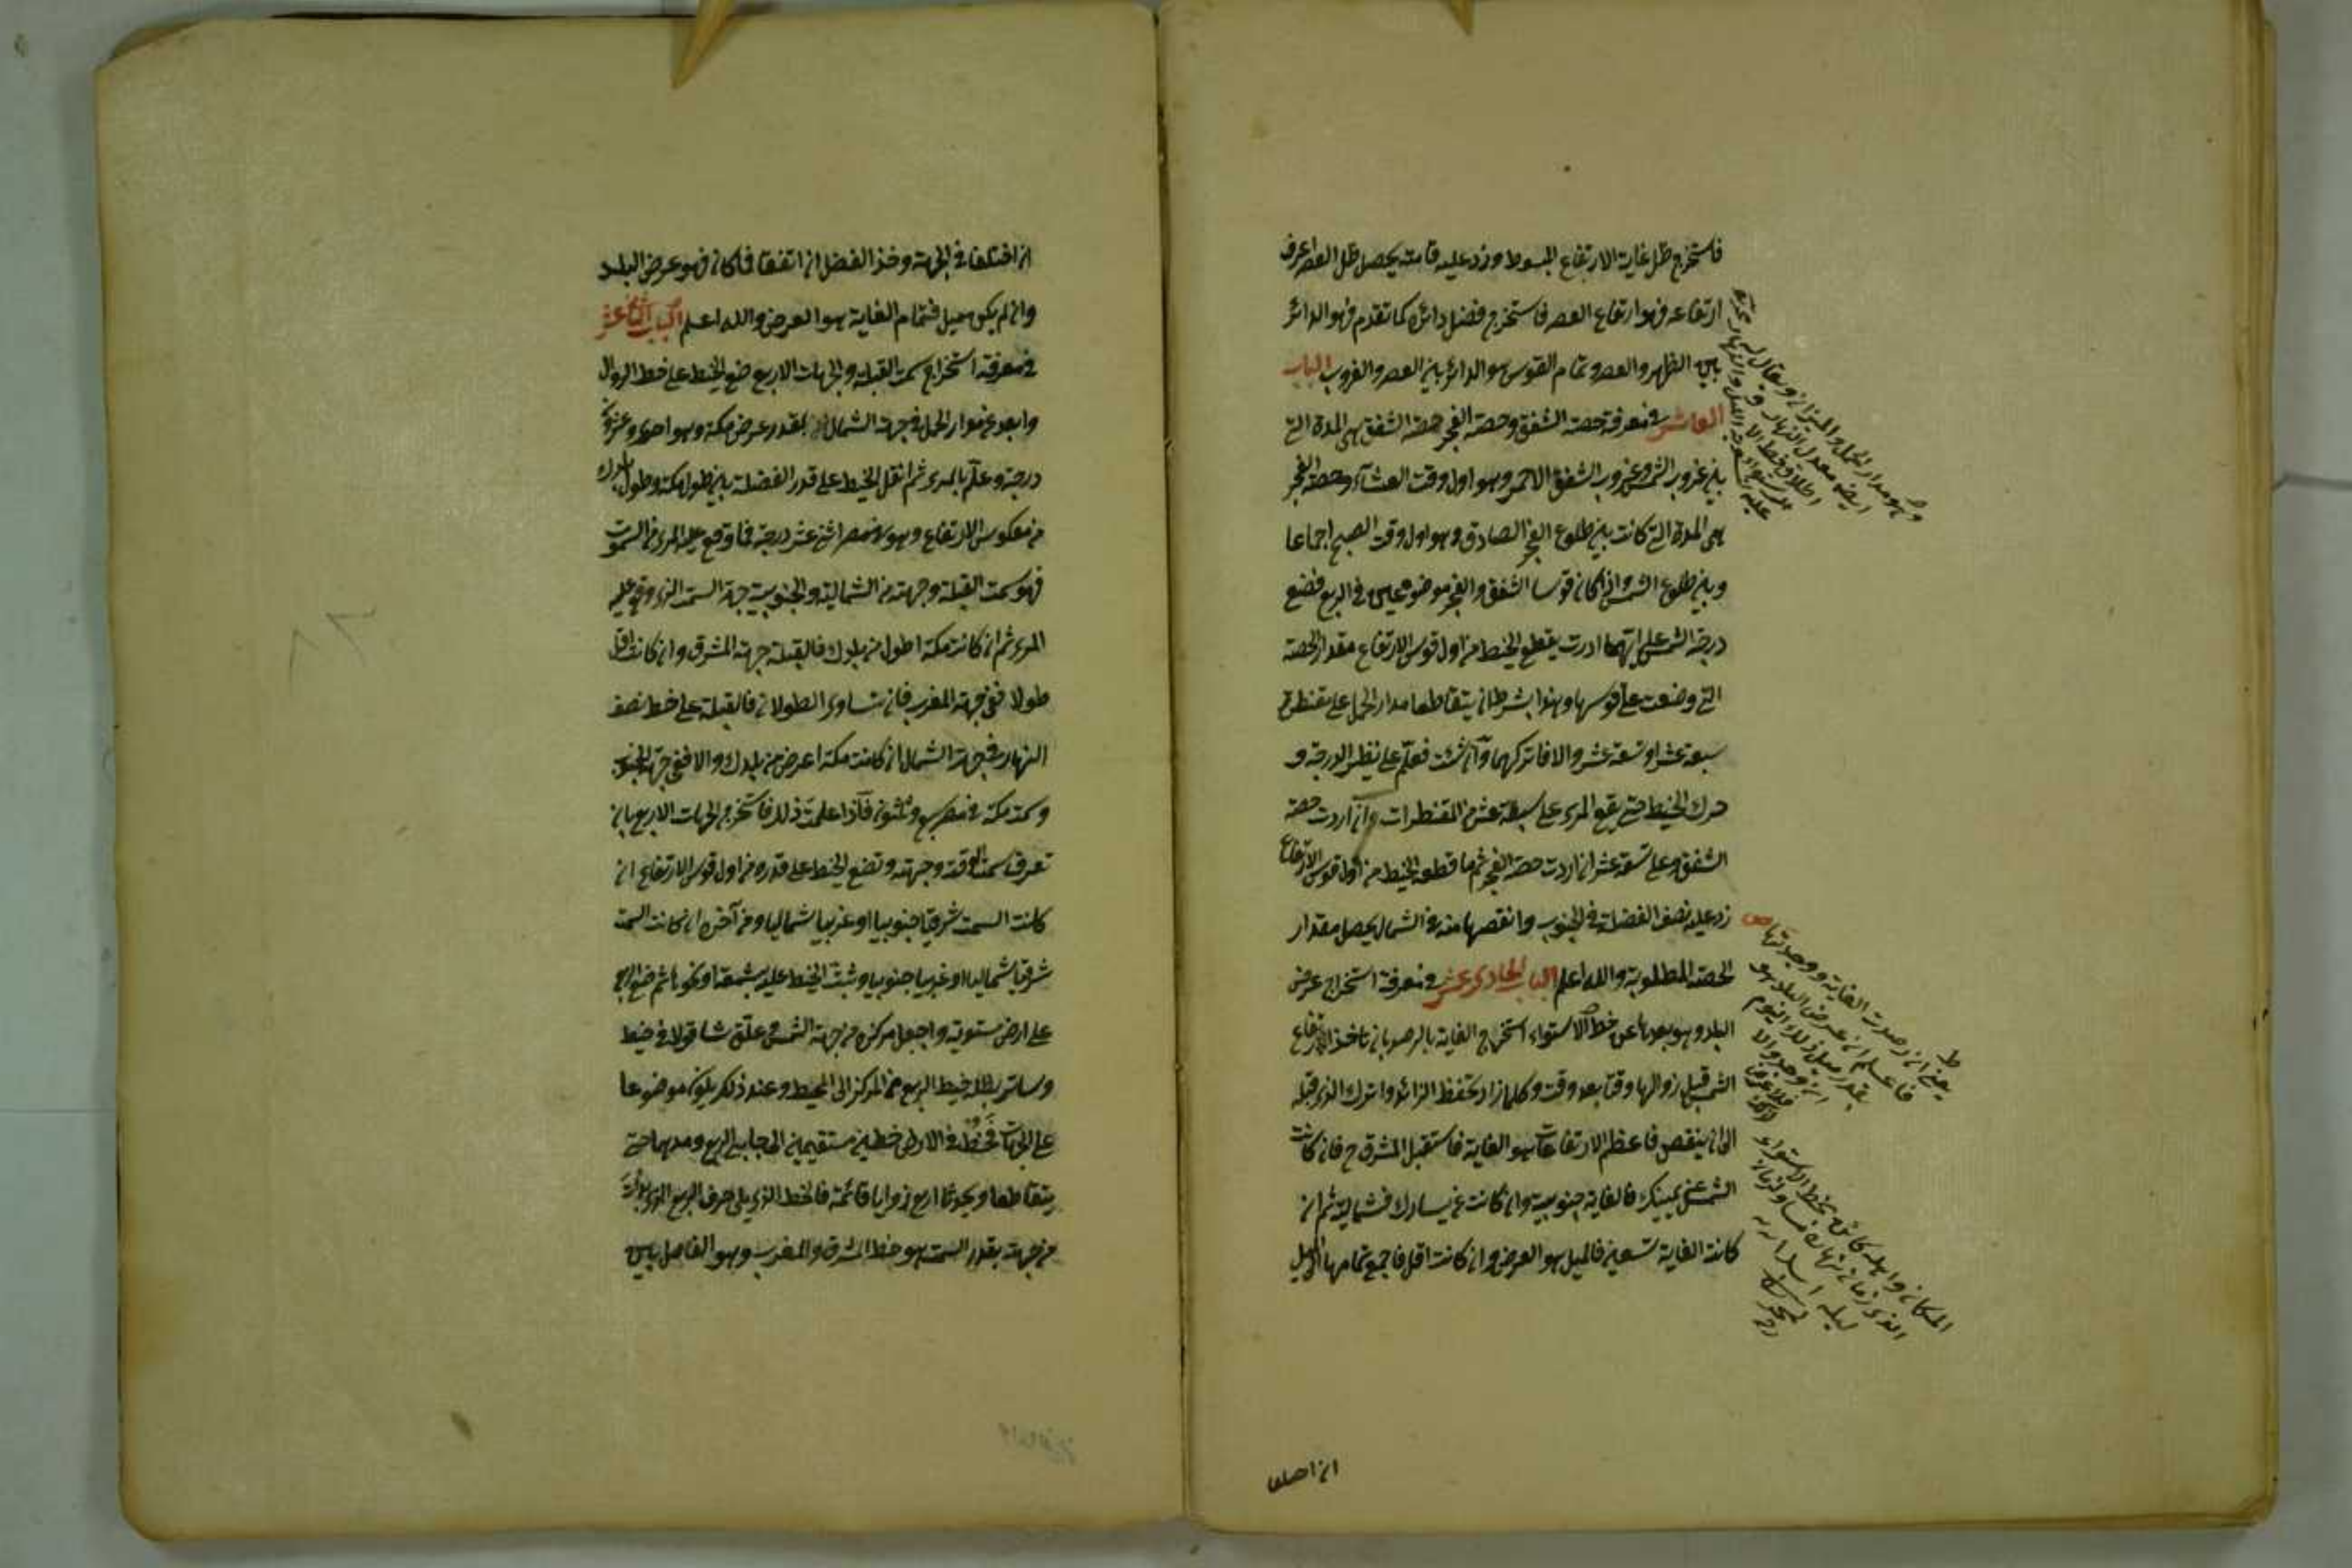 فاستخرج ظل غاية الارتفاع المبسوط وزد عليه قامة يحصل ظل العصر اعرف
ارتفاعه فهو ارتفاع العصر فاستخرج فضل دائره كما تقدم فهو الدائر
بين الظهر والعصر وتمام القوس هو الدائر بين العصر والغروب الباب
العاشر في معرفة حصة الشفق وحصة الفجر حصة الشفق هى المدة التى
بين غروب الشمس وغروب الشفق الاحمر وهو اول وقت العشآء وحصة الفجر
هى المدة التى كانت بين طلوع الفجر الصادق وهو اول وقت الصبح اجماعا
وبين طلوع الشمس فان كان قوسا الشفق والفجر موضوعين فى الربع فضع
درجة الشمس على ايهما اردت يقطع الخيط من اول قوس الارتفاع مقدار الحصة
التى وضعت على قوسها وهذا بشرط ان يتقاطعا مدار الحمل على مقنطرة
سبعة عشر او تسعة عشر والا فاتركهما وان شئت فعلم على نظير الدرجة و
حرك الخيط حتى يقع المرى على سبعة عشر من المقنطرات ان اردت حصة
الشفق وعلى تسعة عشر ان اردت حصة الفجر ثم ما قطعه الخيط من اول قوس الارتفاع
زد عليه نصف الفضلة فى الجنوب وانقصها منه فى الشمال يحصل مقدار
الحصة المطلوبة والله اعلم الباب الحادى عشر فى معرفة استخراج عرض
البلد وهو بعدها عن خط الاستواء استخرج الغاية بالرصد بان تاخذ الارتفاع
الشمس قبل زوالها وقتا بعد وقت وكلما زاد تحفظ الزائد واترك الذى قبله
الى ان ينقص فاعظم الارتفاعات هو الغاية فاستقبل المشرق ح فان كانت
الشمس عن يمينك فالغاية جنوبية وان كانت عن يسارك فشمالية ثم ان
كانت الغاية تسعين فالميل هو العرض وان كانت اقل فاجمع تمامها الى الميل
ان اختلفا
وهو مدار الحمل والميزان ويقال له
ايضا معدل النهار
يعنى ان رصدت الغاية ووجدتها ص
فاعلم ان عرض البلد هو
بقدر ميل ذلك اليوم
ان وجد والا
المكان واهله كائن بخط الاستواء
ان اختلفا فى الجهة وخذ الفضل ان اتفقا فما كان فهو عرض البلد
وان لم يكن ميل فتمام الغاية هو العرض والله اعلم الباب الثانى عشر
فى معرفة استخراج سمت القبلة والجهات الاربع ضع الخيط على خط الزوال
وابعد عن مدار الحمل فى جهة الشمال بقدر عرض مكة وهو احدى وعشرون
درجة وعلم بالمرى ثم انقل الخيط على قدر الفضلة بين طول مكة وطول بلدك
من معكوس الارتفاع وهو فى مصر اثنى عشر درجة فما وقع عليه المرى من السموت
فهو سمت القبلة وجهته من الشمالية والجنوبية جهة السمت الذى وقع عليه
المرى ثم ان كانت مكة اطول من بلدك فالقبلة جهة المشرق وان كانت اقل
طولا ففى جهة المغرب فان تساوى الطولان فالقبلة على خط نصف
النهار فى جهة الشمال ان كانت مكة اعرض من بلدك والا ففى جهة الجنوب
وسمت مكة فى مصر سبع وثلثون فاذا علمت ذلك فاستخرج الجهات الاربع بان
تعرف سمت الوقت وجهته وتضع الخيط على قدره من اول قوس الارتفاع ان
كانت السمت شرقيا جنوبيا او غربيا شماليا ومن آخره ان كانت السمت
شرقيا شماليا او غربيا جنوبيا وثبت الخيط عليه بشمعة او نحوها ثم ضع الربع
على ارض مستوية واجعل مركزه من جهة الشمس وعلق شاقولا فى خيط
وساتر بظله خيط الربع من المركز الى المحيط وعند ذلك يكون موضوعا
على الجهات فخط فى الارض خطين مستقيمين الى جانبى الربع ومدهما حتى
يتقاطعا ويحدث اربع زوايا قائمة فالخط الذى يلى حرف الربع الذى بعدت
من جهته بقدر السمت هو خط المشرق والمغرب وهو الفاصل بين